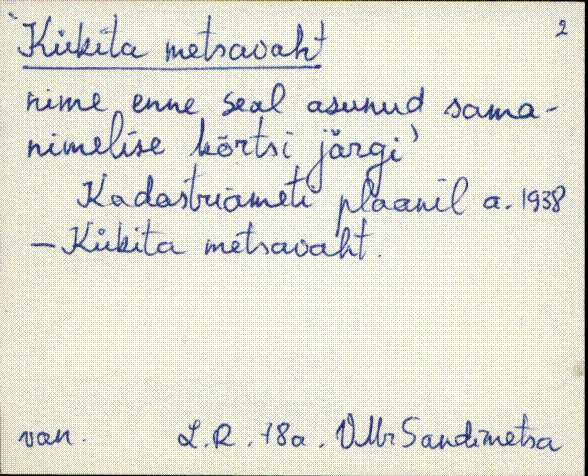 2
Kükita metsavaht
nime enne seal asunud sama-
nimelise kõrtsi järgi'
Kadastriameti plaanil a. 1938
– Kükita metsavaht.
van. L.R. 78a. Sandimetsa